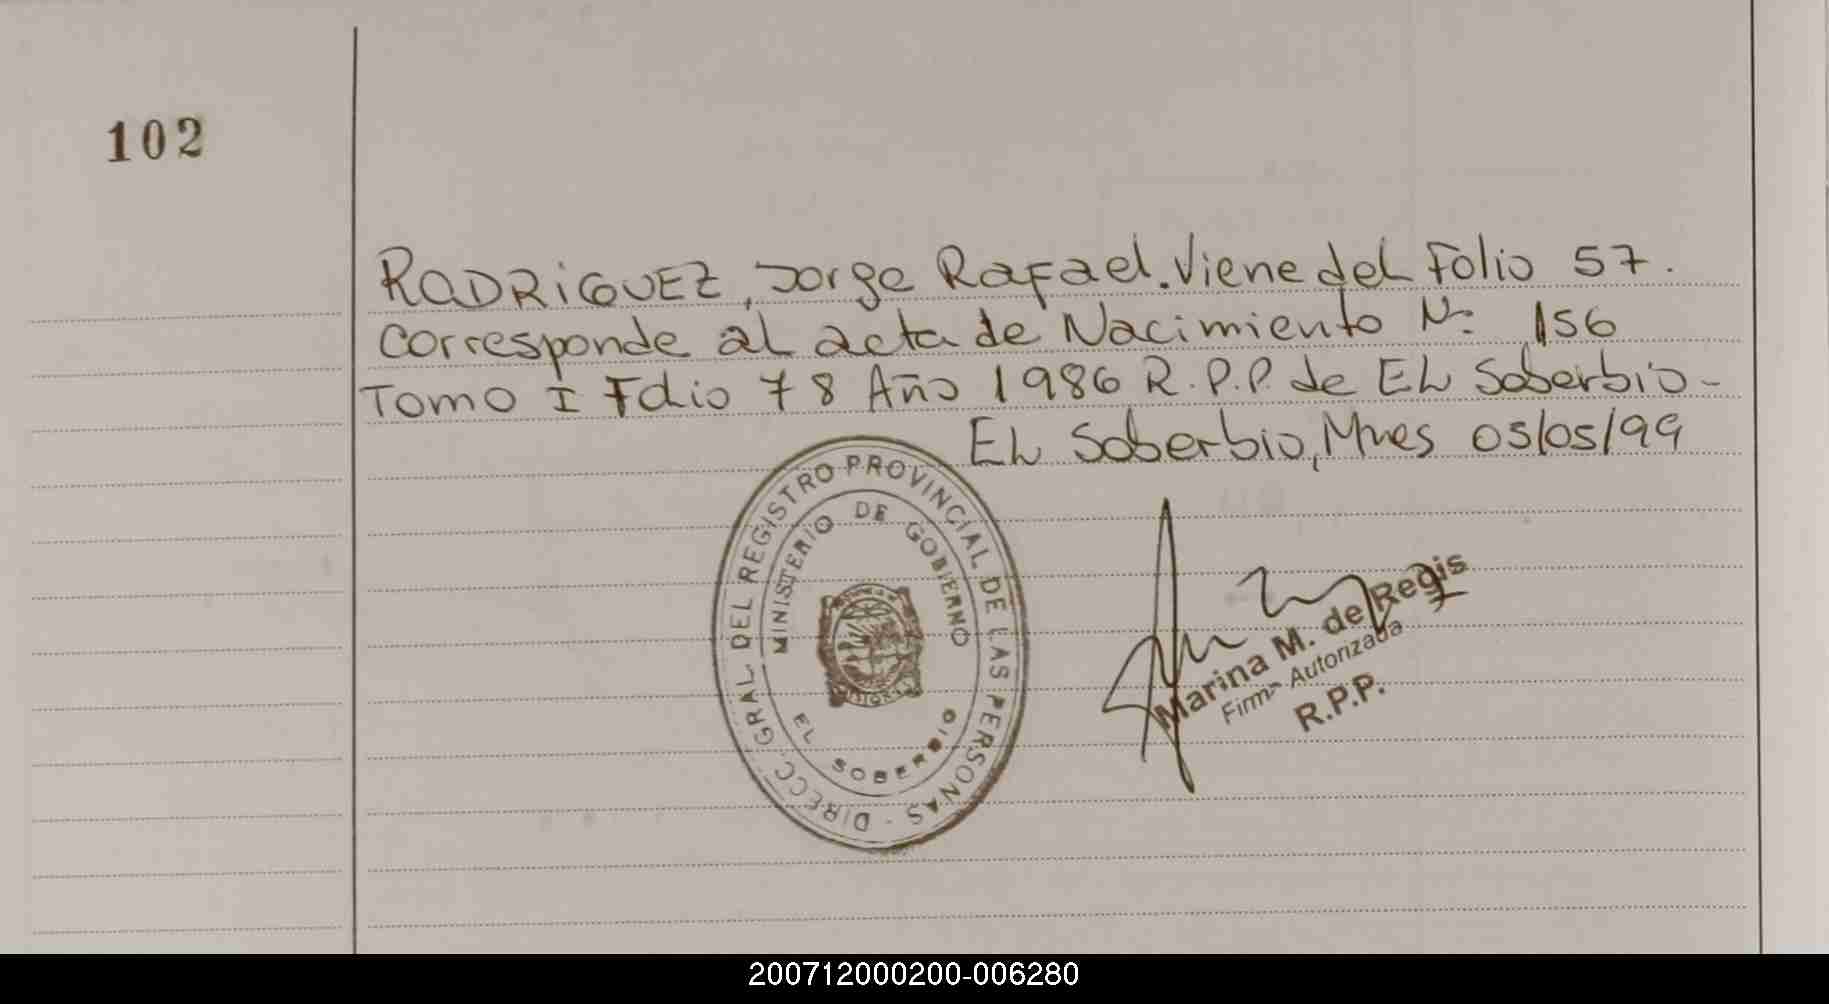 102
RODRIGUEZ, Jorge Rafael. Viene del Folio 57.
Corresponde al acta de Nacimiento Nº 156
Tomo I Folio 78 Año 1986 R.P.P. de EL Soberbio-
EL Soberbio, Mnes 05/05/99
DIRECC. GRAL. DEL REGISTRO PROVINCIAL DE LAS PERSONAS -
MINISTERIO DE GOBIERNO
EL SOBERBIO
Marina M. de Regis
Firma Autorizada
R.P.P.
200712000200-006280